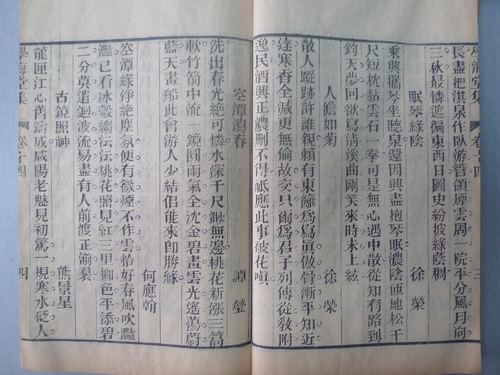 長盡把湛泉作臥游管領煙雲周一院平分風月向
三秋最憐徧東西日圖史紛披綠蔭稠
眠琴綠陰 徐榮
乘興攜琴坐聽泉還因興盡抱琴眠濃陰匝地松千
尺短枕雲石一拳可是無心遇中散從知有路到
鈞天夢回欲寫淸溪曲剛笑來時未上絃
人澹如菊 徐榮
散人蹤跡許誰親賴有東籬爲寫眞傲骨漸平知近
達寒香全減更無倫故交只爾爲君子列傳從敎附
逸民酒興正濃刪不得祗應此事被花嗔
空潭瀉春 譚瑩
洗出春光絶可憐水深千尺渺無邊桃花新漲三篙
軟竹箭中流一鏡圓雨氣全沈金碧畫雲光遙蕩蔚
藍天畫船此會游人少結侶能來卽勝緣
何應翰
空潭綠淨絶塵氛便有微煙不作雲恰好春風吹灩
灩已看冰縠縐沄沄桃花照見紅三里柳色平添碧
二分莫遣迴波流易盡有人前渡正湔裠
古鏡照神 熊景星
龍匣江心舊鑄成咸陽老魅見初驚一規寒水砭人
學海堂集 卷十四 四